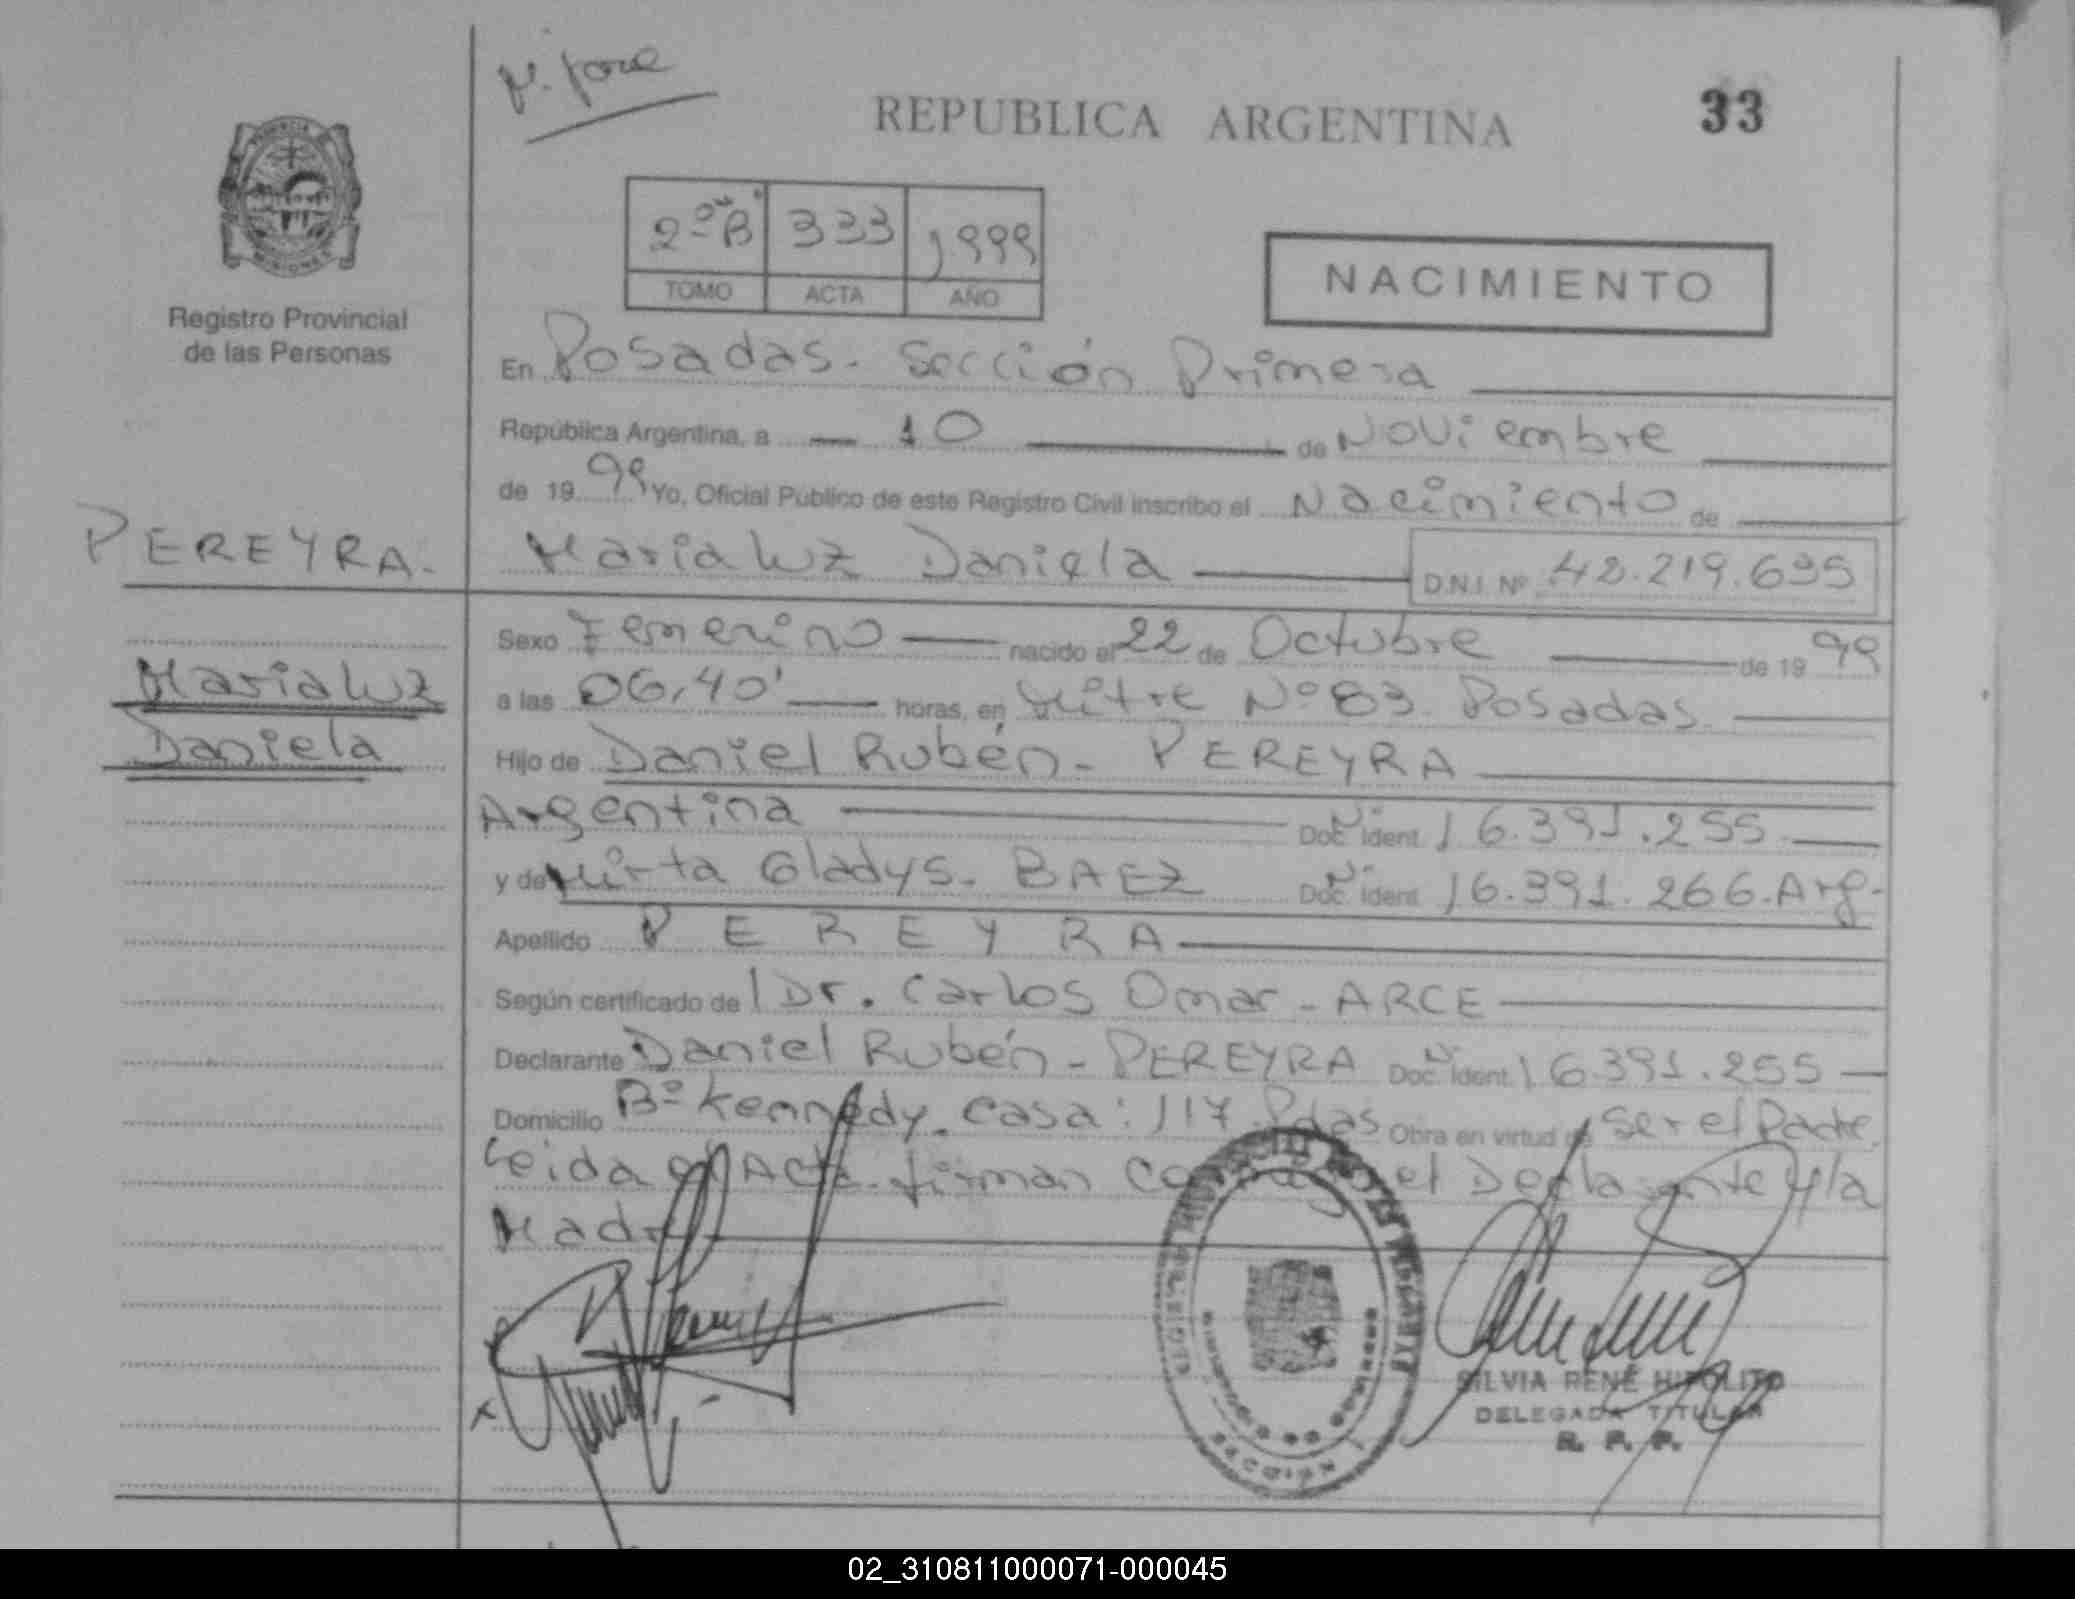 REPUBLICA ARGENTINA
33
PROVINCIA
MISIONES
Registro Provincial
de las Personas
2º B 333 1999
TOMO ACTA AÑO
NACIMIENTO
En Posadas. Sección Primera
República Argentina, a 10 de Noviembre
de 1999 Yo, Oficial Público de este Registro Civil inscribo el Nacimiento de
PEREYRA.
Maria Luz Daniela D.N.I. Nº 42.219.695
Maria Luz
Daniela
Sexo Femenino nacido el 22 de Octubre de 1999
a las 06,40' horas, en Mitre Nº 83. Posadas.
Hijo de Daniel Rubén - PEREYRA
Argentina Doc. Ident. 16.391.255
y de Mirta Gladys. BAEZ Doc. Ident. 16.391.266. Arg.
Apellido PEREYRA
Según certificado de Dr. Carlos Omar - ARCE
Declarante Daniel Rubén - PEREYRA Doc. Ident. 16.391.255
Domicilio Bº Kennedy. Casa: 117. Pdas Obra en virtud de Ser el Padre.
Leida el Acta. firman el Declarante y la
Madre
SILVIA RENÉ HIPOLITO
DELEGADA TITULAR
R. P. P.
02_310811000071-000045